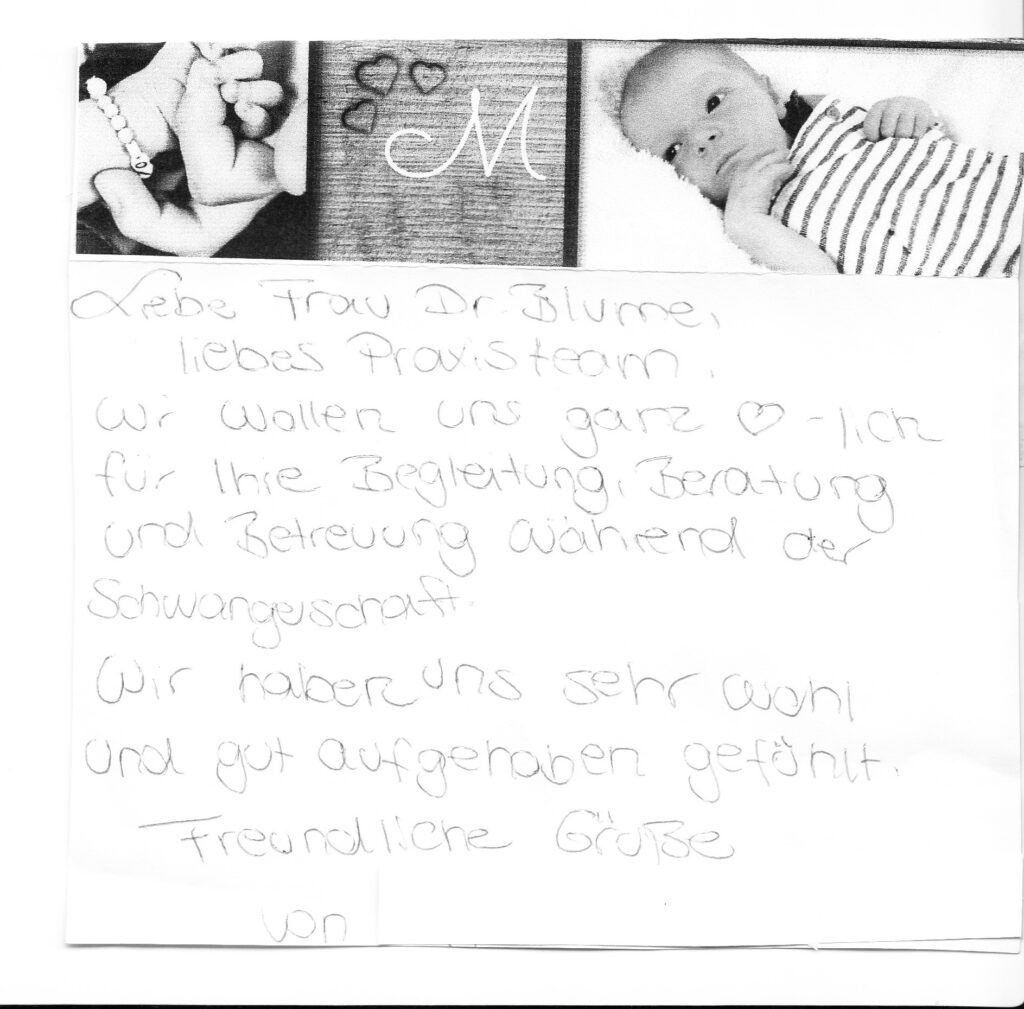 M
Liebe Frau Dr. Blume,
liebes Praxisteam.
Wir wollen uns ganz ♡-lich
für Ihre Begleitung, Beratung
und Betreuung während der
Schwangerschaft.
Wir haben uns sehr wohl
und gut aufgehoben gefühlt.
Freundliche Grüße
von